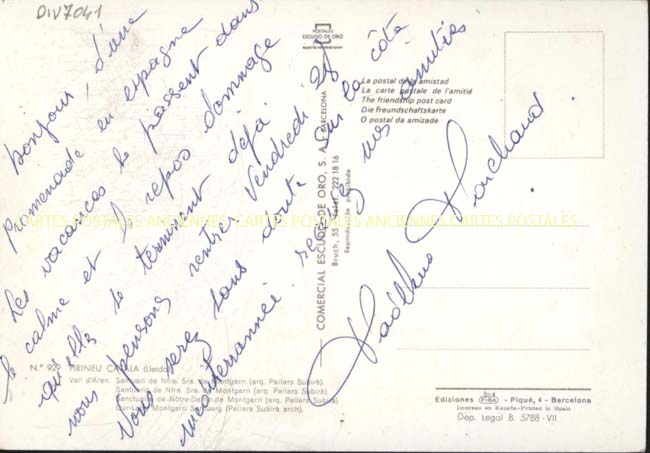 DIV7041
Bonjour, d'une
promenade en espagne
Les vacances se passent dans
le calme et le repos dommage
qu'elles se terminent déjà
nous pensons rentrer Vendredi 28
Vous serez sans doute sur la côte
méditerrannée. recevez mes amitiés.
POSTALES
ESCUDO DE ORO
La postal de la amistad
La carte postale de l'amitié
The friendship post card
Die Freundschaftskarte
O postal da amizade
COMERCIAL ESCUDO DE ORO, S. A. - BARCELONA
Bruch, 55 222 18 16
Reproducción prohibida
CARTES POSTALES ANCIENNES CARTES POSTALES ANCIENNES CARTES POSTALES
N.º PIRINEU CATALÀ (Lleida)
Vall d'Aran. Santuari de Ntra. Sra. de Montgarri (arq. Pallars Subirà).
Santuario de Ntra. Sra. de Montgarri (arq. Pallars Subirà).
Sanctuaire de Nôtre-Dame de Montgarri (arq. Pallars Subirà)
Our-Lady Montgarri Sanctuary (Pallars Subirà arch).
Ediciones PIBA - Piqué, 4 - Barcelona
Impreso en España-Printed in Spain
Dep. Legal B. 5788 - VII